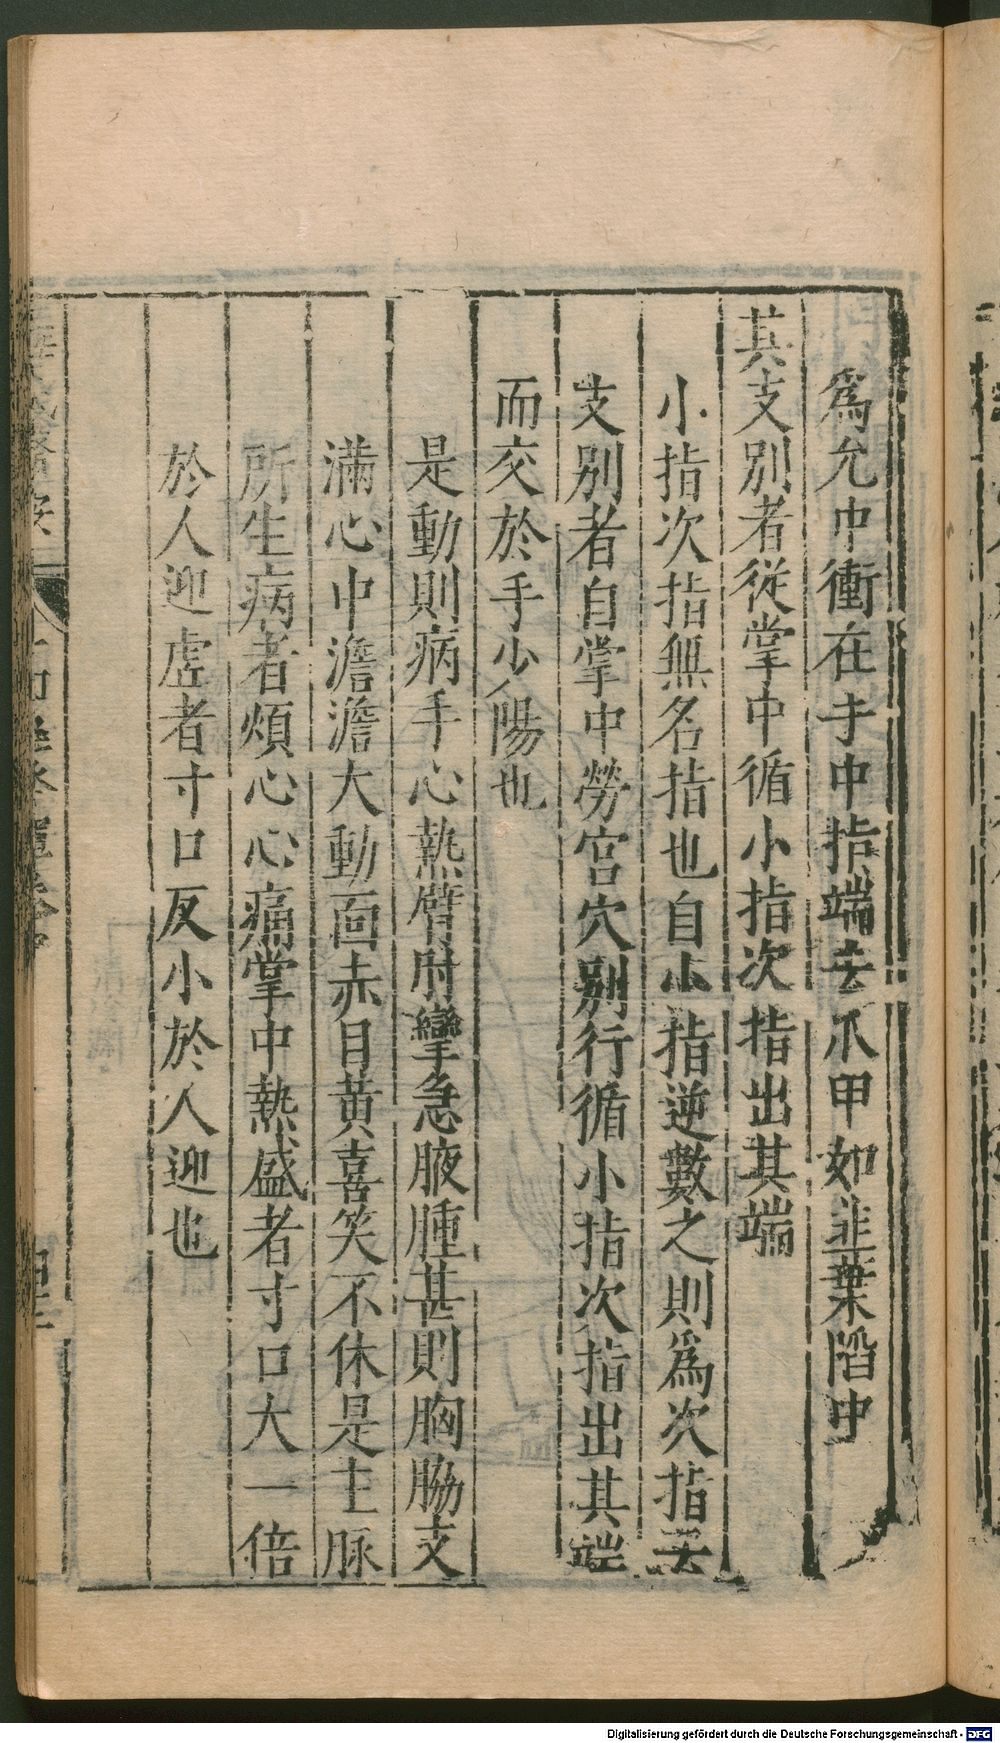 為允中衝在手中指端去爪甲如韭葉陷中
其支別者從掌中循小指次指出其端
小指次指無名指也自小指逆數之則為次指云
支別者自掌中勞宮穴別行循小指次指出其端
而交於手少陽也
是動則病手心熱臂肘攣急腋腫甚則胸脇支
滿心中澹澹大動面赤目黃喜笑不休是主脉
所生病者煩心心痛掌中熱盛者寸口大一倍
於人迎虛者寸口反小於人迎也
Digitalisierung gefördert durch die Deutsche Forschungsgemeinschaft - DFG